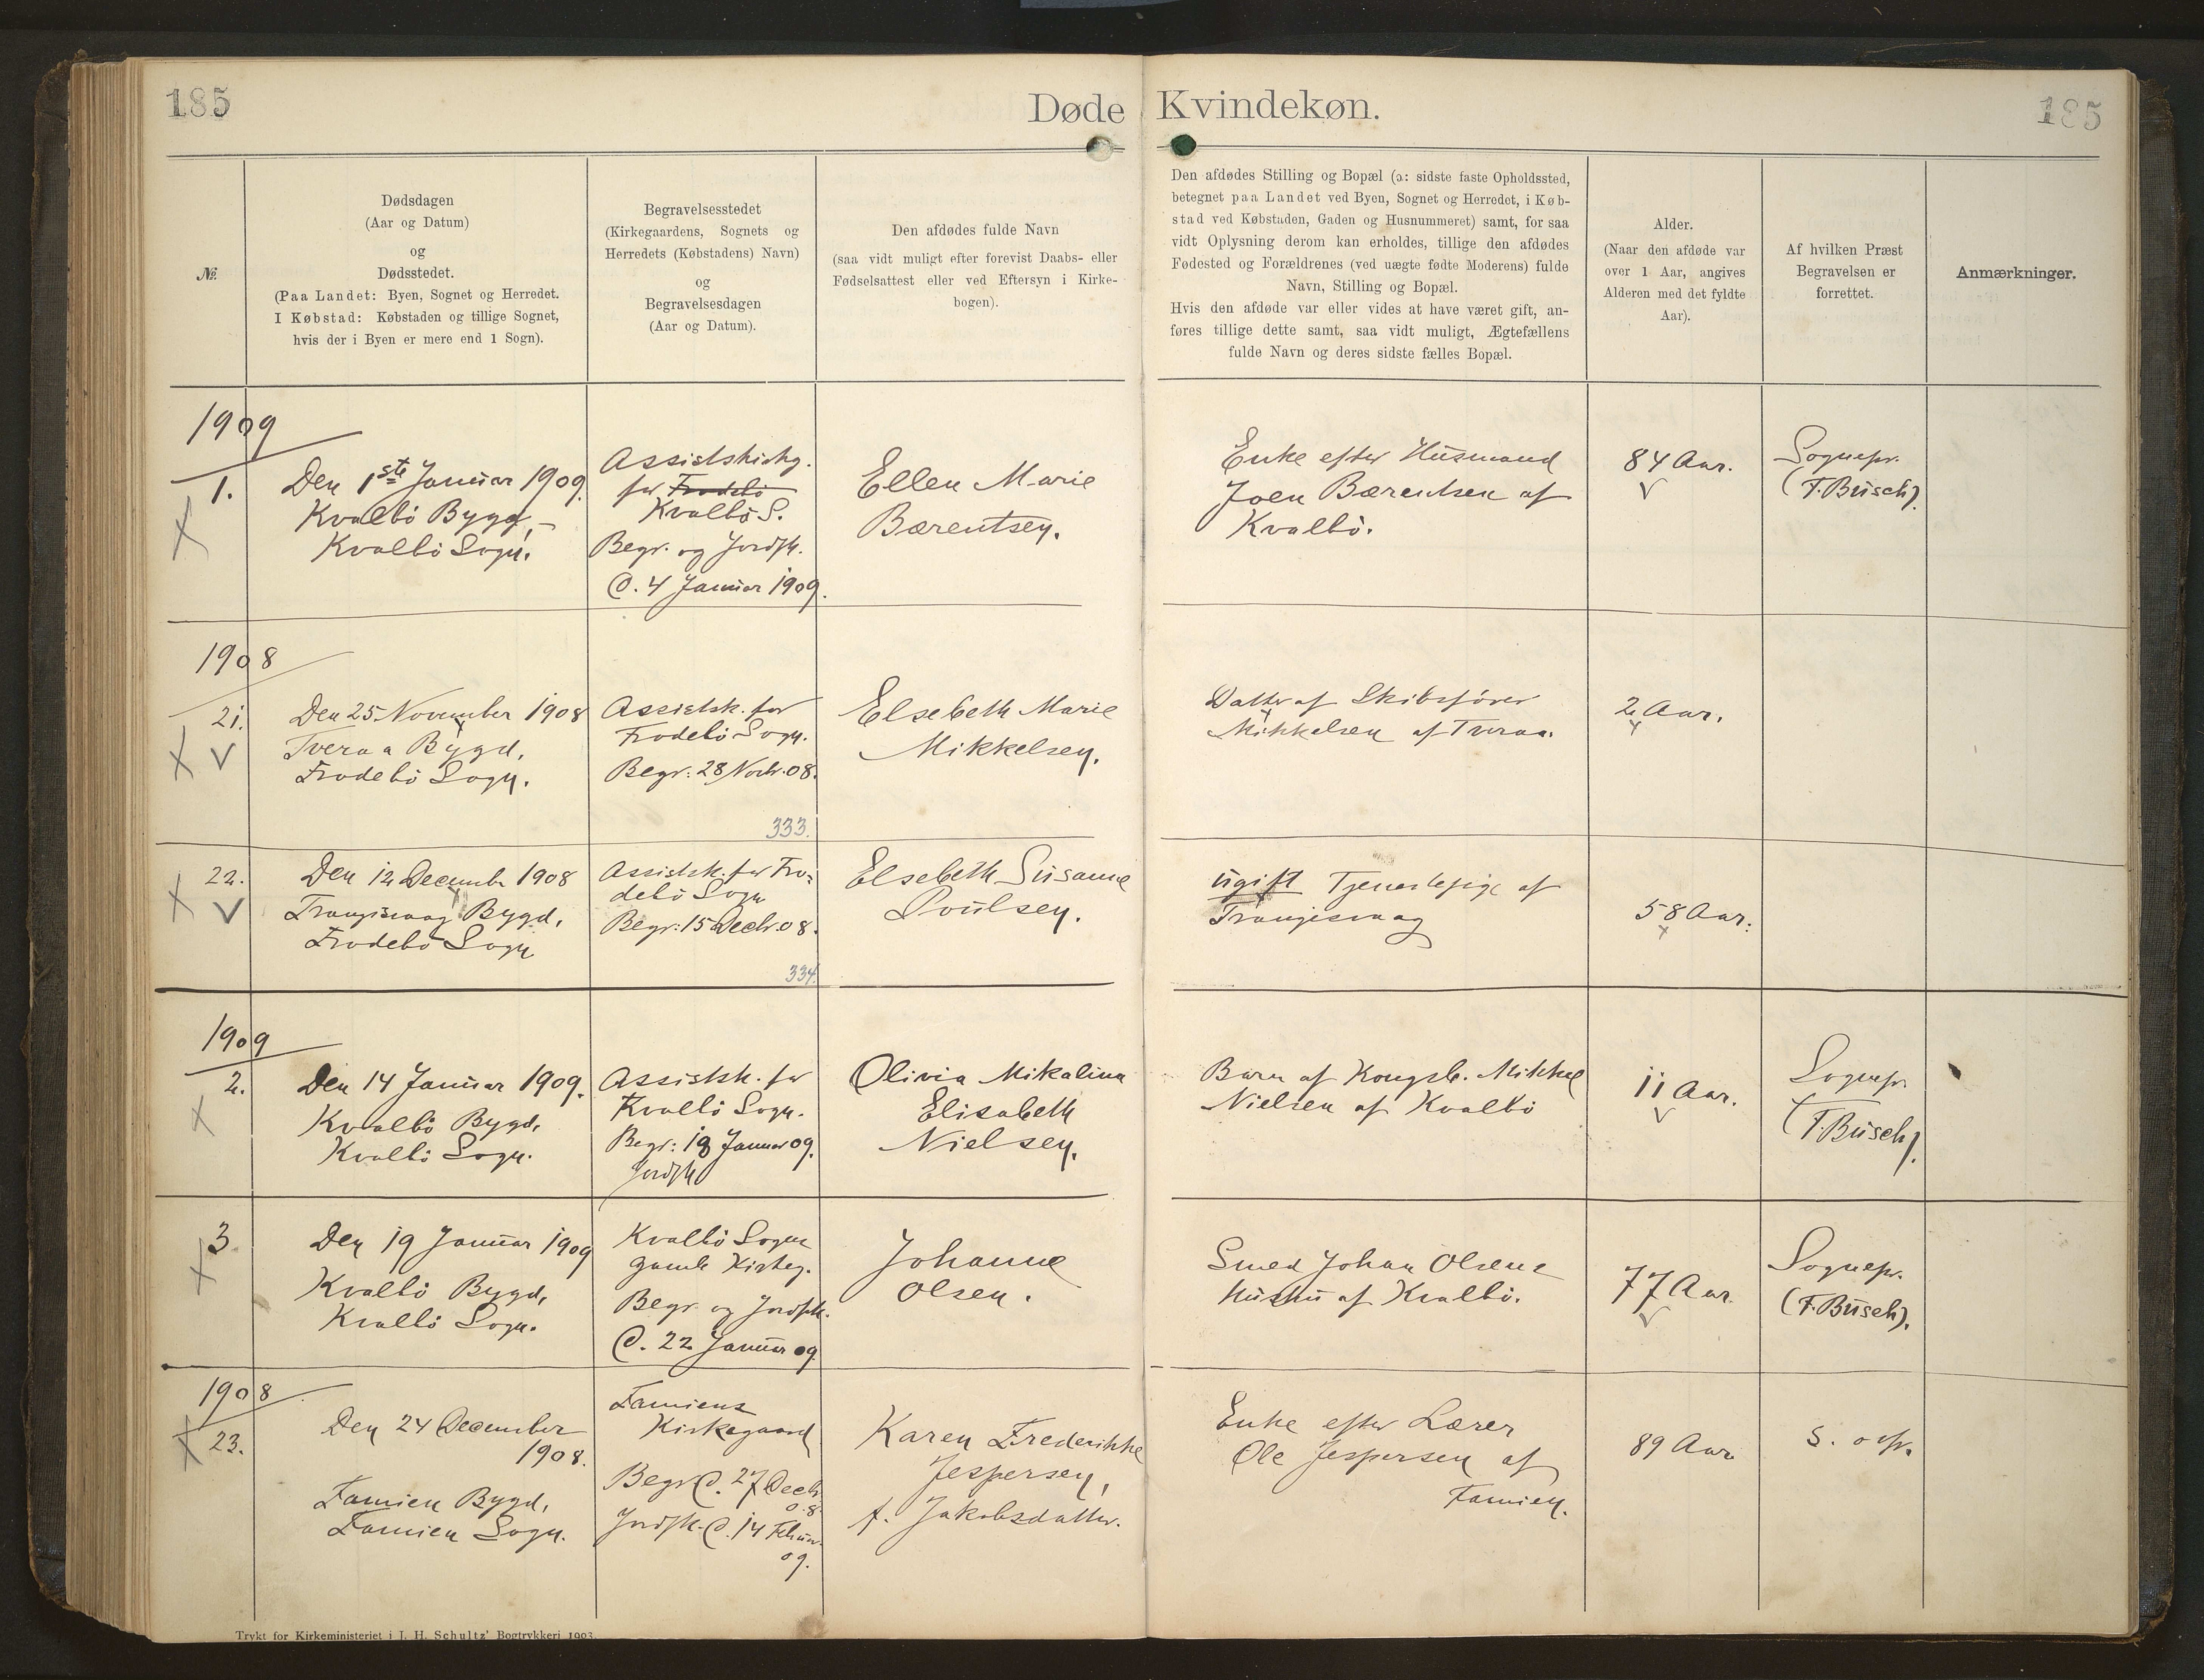 185
Døde
Kvindekøn.
185
№.
Dødsdagen
(Aar og Datum)
og
Dødsstedet.
(Paa Landet: Byen, Sognet og Herredet.
I Købstad: Købstaden og tillige Sognet,
hvis der i Byen er mere end 1 Sogn).
Begravelsesstedet
(Kirkegaardens, Sognets og
Herredets (Købstadens) Navn)
og
Begravelsesdagen
(Aar og Datum).
Den afdødes fulde Navn
(saa vidt muligt efter forevist Daabs- eller
Fødselsattest eller ved Eftersyn i Kirke-
bogen).
Den afdødes Stilling og Bopæl (ɔ: sidste faste Opholdssted,
betegnet paa Landet ved Byen, Sognet og Herredet, i Køb-
stad ved Købstaden, Gaden og Husnummeret) samt, for saa
vidt Oplysning derom kan erholdes, tillige den afdødes
Fødested og Forældrenes (ved uægte fødte Moderens) fulde
Navn, Stilling og Bopæl.
Hvis den afdøde var eller vides at have været gift, an-
føres tillige dette samt, saa vidt muligt, Ægtefællens
fulde Navn og deres sidste fælles Bopæl.
Alder.
(Naar den afdøde var
over 1 Aar, angives
Alderen med det fyldte
Aar).
Af hvilken Præst
Begravelsen er
forrettet.
Anmærkninger.
1909
1.
Den 1ste Januar 1909
Kvalbö Bygd,
Kvalbö Sogn.
Assistskirkg.
for Frodebö
Kvalbö S.
Begr. og Jordfk.
d. 4 Januar 1909.
Ellen Marie
Bærentsen.
Enke efter Husmand
Joen Bærentsen af
Kvalbö.
84 Aar.
Sognepr.
(F. Busch).
1908
21.
Den 25 November 1908
Tveraa Bygd,
Frodebö Sogn.
Assistsk. for
Frodebö Sogn.
Begr: 28 Novbr. 08.
333.
Elsebeth Marie
Mikkelsen.
Datter af Skibsfører
Mikkelsen af Tveraa.
2 Aar.
22.
Den 12 Decembr 1908
Trangisvaag Bygd,
Frodebö Sogn
Assistsk. for Fro=
debö Sogn
Begr: 15 Decbr. 08.
334.
Elsebeth Susanne
Poulsen.
ugift Tjenestepige af
Trangisvaag
58 Aar.
1909
2.
Den 14 Januar 1909.
Kvalbö Bygd,
Kvalbö Sogn.
Assistsk. for
Kvalbö Sogn.
Begr: 18 Januar 09.
Jordfk
Olivia Mikalina
Elisabeth
Nielsen.
Barn af Kongsb. Mikkel
Nielsen af Kvalbö
11 Aar.
Sognepr
(F. Busch).
3
Den 19 Januar 1909
Kvalbö Bygd,
Kvalbö Sogn.
Kvalbö Sogns
gamle Kirkeg.
Begr. og Jordfk.
d. 22 Januar 09
Johanne
Olsen.
Smed Johan Olsens
Hustru af Kvalbö.
77 Aar.
Sognepr.
(F. Busch).
1908
23.
Den 24 December
1908.
Famien Bygd,
Famien Sogn.
Famiens
Kirkegaard
Begr d. 27 Decbr.
08.
Jordfk. d. 14 Februar
09.
Karen Frederikke
Jespersen,
f. Jakobsdatter.
Enke efter Lærer
Ole Jespersen af
Famien.
89 Aar
S. o ff.
Trykt for Kirkeministeriet i J. H. Schultz' Bogtrykkeri 1903.